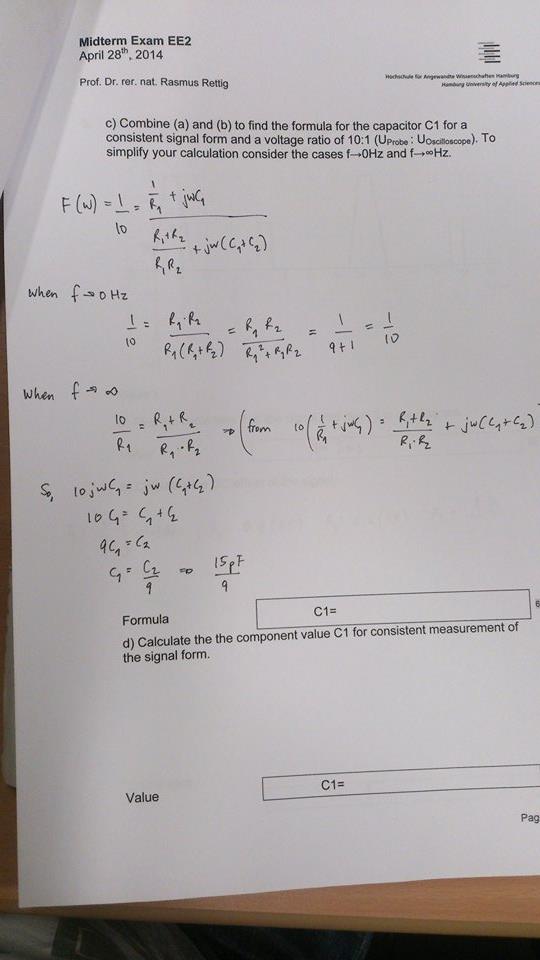 Midterm Exam EE2
April 28th, 2014
Prof. Dr. rer. nat. Rasmus Rettig
Hochschule für Angewandte Wissenschaften Hamburg
Hamburg University of Applied Sciences
c) Combine (a) and (b) to find the formula for the capacitor C1 for a
consistent signal form and a voltage ratio of 10:1 (UProbe : UOscilloscope). To
simplify your calculation consider the cases f→0Hz and f→∞Hz.
F(w) = 1/10 = (1/R1 + jwC1) / ((R1+R2)/(R1R2) + jw(C1+C2))
When f→0 Hz
1/10 = R1·R2 / (R1(R1+R2)) = R1 R2 / (R1² + R1R2) = 1/(9+1) = 1/10
When f→∞
10/R1 = (R1+R2)/(R1·R2) ⇒ (from 10(1/R1 + jwC1) = (R1+R2)/(R1·R2) + jw(C1+C2)
So, 10jwC1 = jw(C1+C2)
10C1 = C1+C2
9C1 = C2
C1 = C2/9 ⇒ 15pF/9
C1=
6
Formula
d) Calculate the the component value C1 for consistent measurement of
the signal form.
C1=
Value
Pag